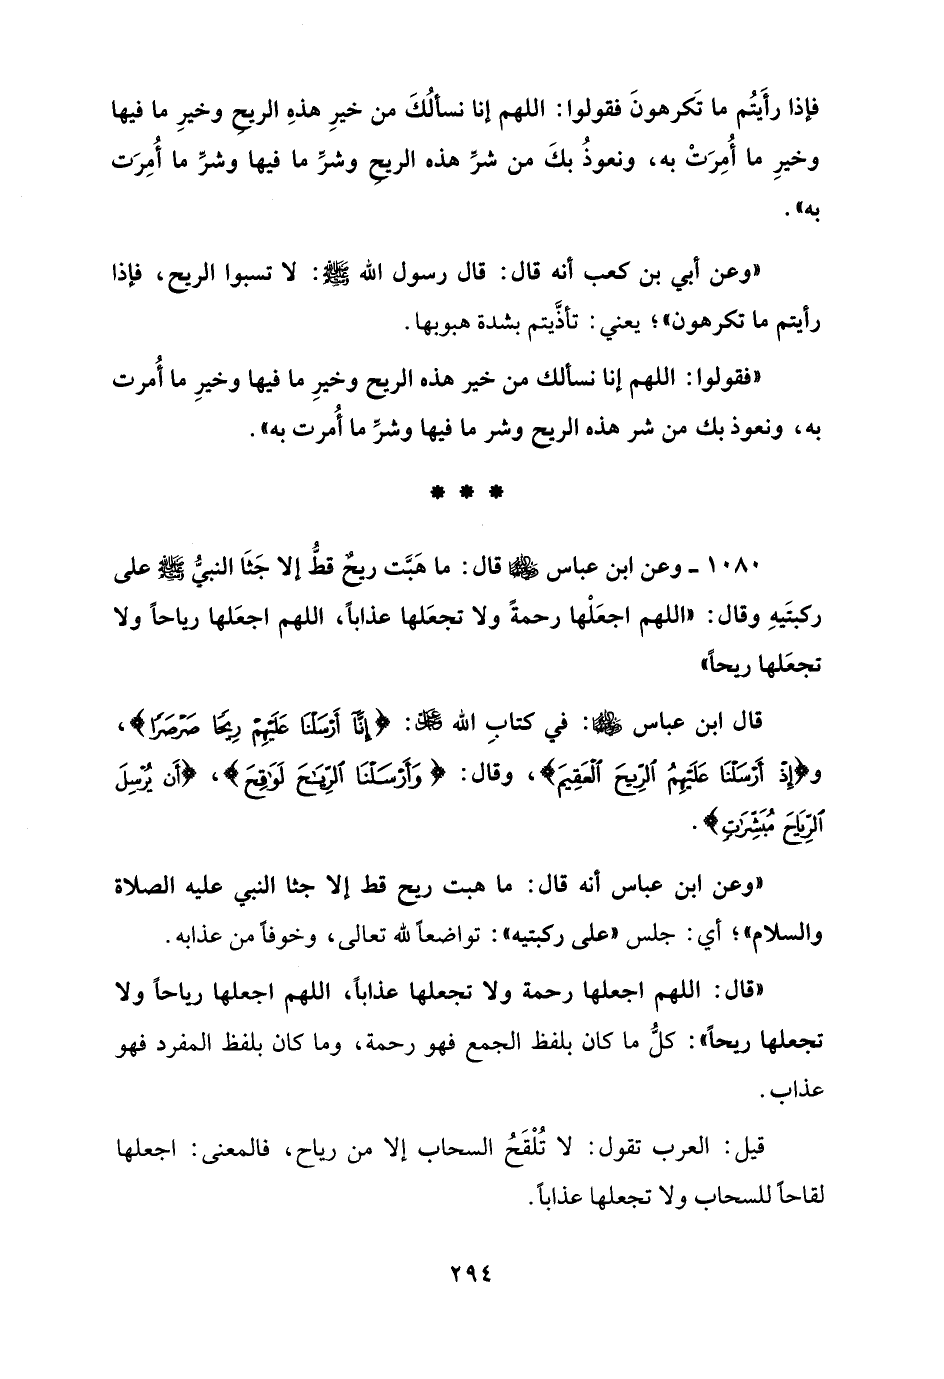 فإذا رأَيتُم ما تَكرهونَ فقولوا: اللهم إنا نسألُكَ من خيرِ هذهِ الريحِ وخيرِ ما فيها
وخيرِ ما أُمِرَتْ به، ونعوذُ بكَ من شرِّ هذه الريحِ وشرِّ ما فيها وشرِّ ما أُمِرَت
به».
«وعن أبي بن كعب أنه قال: قال رسول الله ﷺ: لا تسبوا الريح، فإذا
رأيتم ما تكرهون»؛ يعني: تأذَّيتم بشدة هبوبها.
«فقولوا: اللهم إنا نسألك من خير هذه الريح وخيرِ ما فيها وخيرِ ما أُمرت
به، ونعوذ بك من شر هذه الريح وشر ما فيها وشرِّ ما أُمرت به».
* * *
١٠٨٠ - وعن ابن عباس ﵄ قال: ما هَبَّت ريحٌ قطُّ إلا جَثَا النبيُّ ﷺ على
ركبتَيهِ وقال: «اللهم اجعَلْها رحمةً ولا تجعَلها عذاباً، اللهم اجعَلها رياحاً ولا
تجعَلها ريحاً»
قال ابن عباس ﵄: في كتابِ الله ﷿: ﴿إِنَّآ أَرْسَلْنَا عَلَيْهِمْ رِيحًا صَرْصَرًا﴾،
و﴿إِذْ أَرْسَلْنَا عَلَيْهِمُ ٱلرِّيحَ ٱلْعَقِيمَ﴾، وقال: ﴿وَأَرْسَلْنَا ٱلرِّيَٰحَ لَوَٰقِحَ﴾، ﴿أَن يُرْسِلَ
ٱلرِّيَاحَ مُبَشِّرَٰتٍ﴾.
«وعن ابن عباس أنه قال: ما هبت ريح قط إلا جثا النبي عليه الصلاة
والسلام»؛ أي: جلس «على ركبتيه»: تواضعاً لله تعالى، وخوفاً من عذابه.
«قال: اللهم اجعلها رحمة ولا تجعلها عذاباً، اللهم اجعلها رياحاً ولا
تجعلها ريحاً»: كلُّ ما كان بلفظ الجمع فهو رحمة، وما كان بلفظ المفرد فهو
عذاب.
قيل: العرب تقول: لا تُلْقَحُ السحاب إلا من رياح، فالمعنى: اجعلها
لقاحاً للسحاب ولا تجعلها عذاباً.
٢٩٤